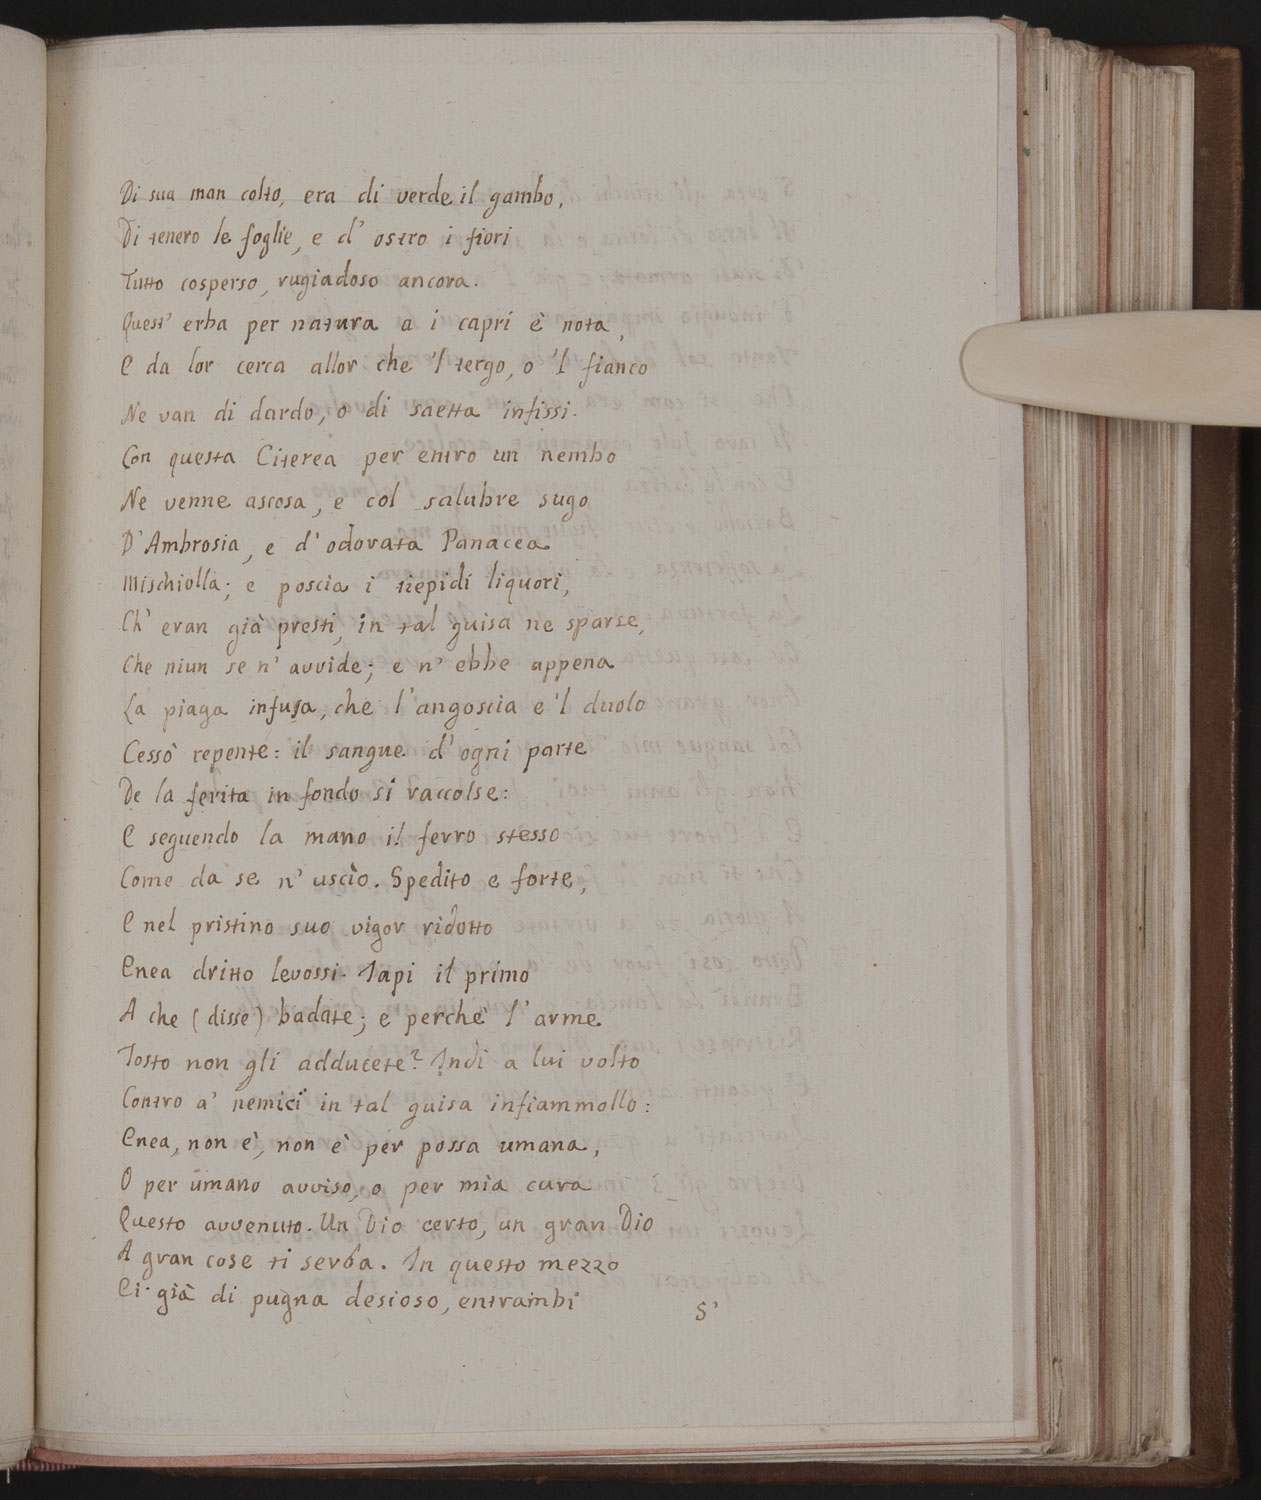 Di sua man colto, era di verde il gambo,
Di tenero le foglie, e d' ostro i fiori
Tutto cosperso, rugiadoso ancora.
Quest' erba per natura a i capri è nota,
E da lor cerca allor che 'l tergo, o 'l fianco
Ne van di dardo, o di saetta infissi.
Con questa Citerea per entro un nembo
Ne venne ascosa, e col salubre sugo
D' Ambrosia, e d' odorata Panacea
Mischiolla; e poscia i tiepidi liquori,
Ch' eran già presti, in tal guisa ne sparse,
Che niun se n' avvide; e n' ebbe appena
La piaga infusa, che l' angoscia e 'l duolo
Cessò repente: il sangue d' ogni parte
De la ferita in fondo si raccolse:
E seguendo la mano il ferro stesso
Come da se n' uscìo. Spedito e forte,
E nel pristino suo vigor ridotto
Enea dritto levossi. Iapi il primo
A che (disse) badate; e perchè l' arme
Tosto non gli adducete? Indi a lui volto
Contro a' nemici in tal guisa infiammollo:
Enea, non è, non è per possa umana,
O per umano avviso, o per mia cura
Questo avvenuto. Un Dio certo, un gran Dio
A gran cose ti serba. In questo mezzo
Ei già di pugna desioso, entrambi
S'